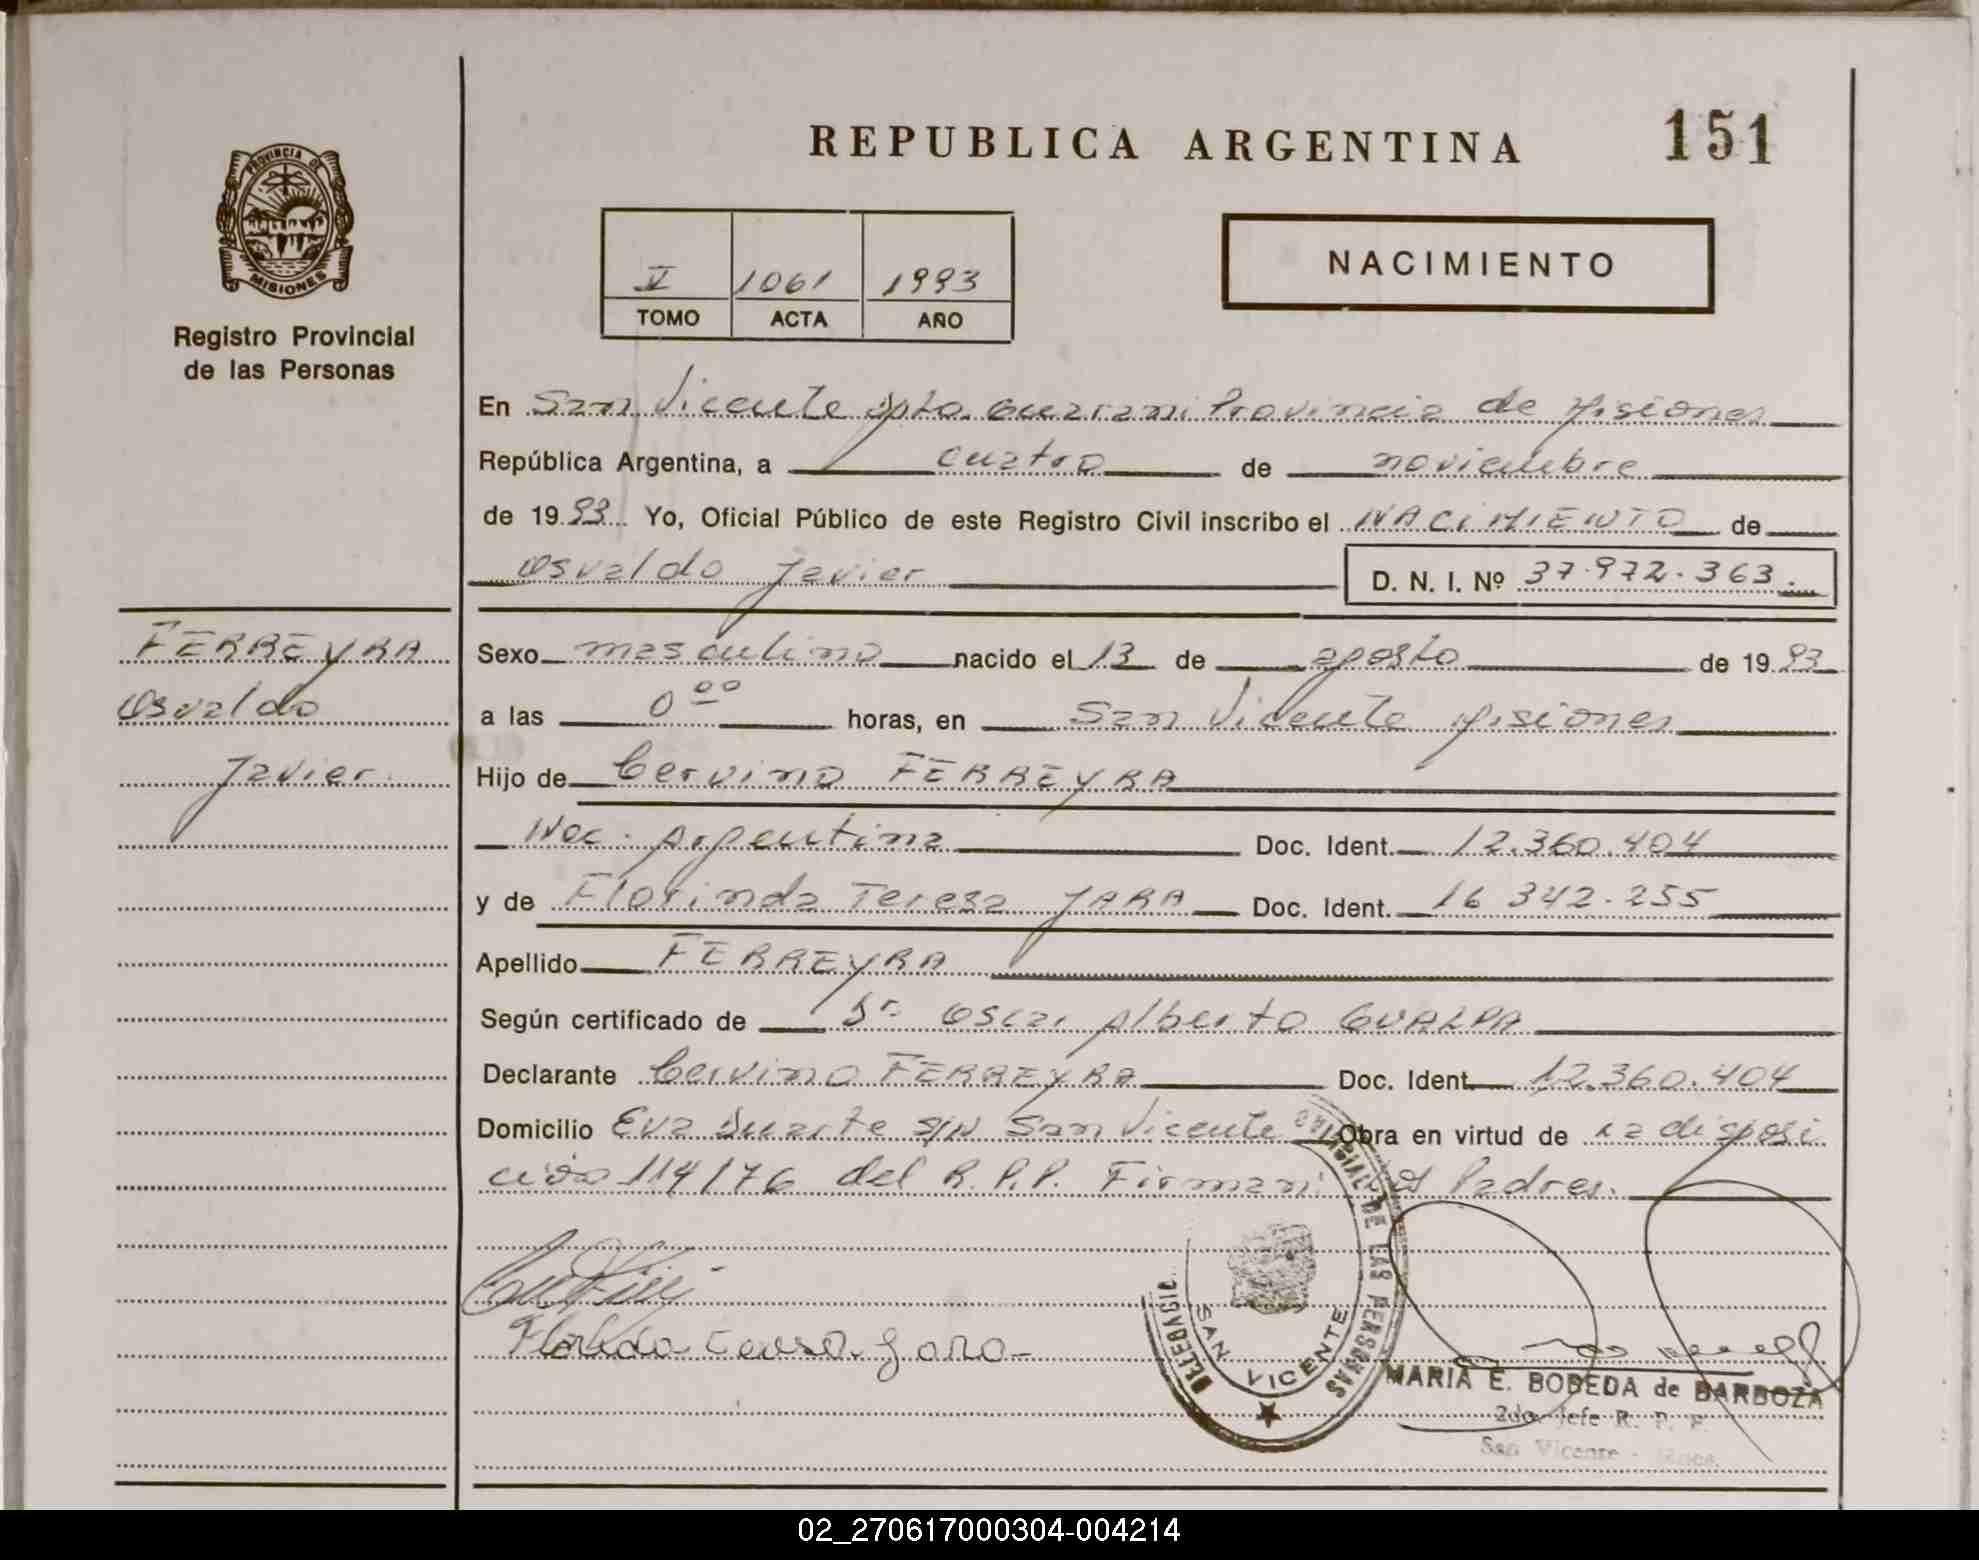 REPUBLICA ARGENTINA
151
PROVINCIA DE
MISIONES
Registro Provincial
de las Personas
V 1061 1993
TOMO ACTA AÑO
NACIMIENTO
En San Vicente Dpto. Guarani Provincia de Misiones
República Argentina, a cuatro de noviembre
de 1993 Yo, Oficial Público de este Registro Civil inscribo el NACIMIENTO de
Osvaldo Javier D. N. I. Nº 37.972.363.
FERREYRA
Osvaldo
Javier
Sexo masculino nacido el 13 de agosto de 1993
a las 0 00 horas, en San Vicente Misiones
Hijo de Cervino FERREYRA
Nac. Argentina Doc. Ident. 12.360.404
y de Florinda Teresa JARA Doc. Ident. 16 342.255
Apellido FERREYRA
Según certificado de Dr. Oscar Alberto GUALPA
Declarante Cervino FERREYRA Doc. Ident. 12.360.404
Domicilio Eva Duarte S/N San Vicente Obra en virtud de la disposi
ción 114/76 del R.P.P. Firman: Padres.
DE LAS PERSONAS
SAN VICENTE
MARIA E. BOBEDA de BARBOZA
2do. Jefe R. P. P.
San Vicente - Mnes.
02_270617000304-004214